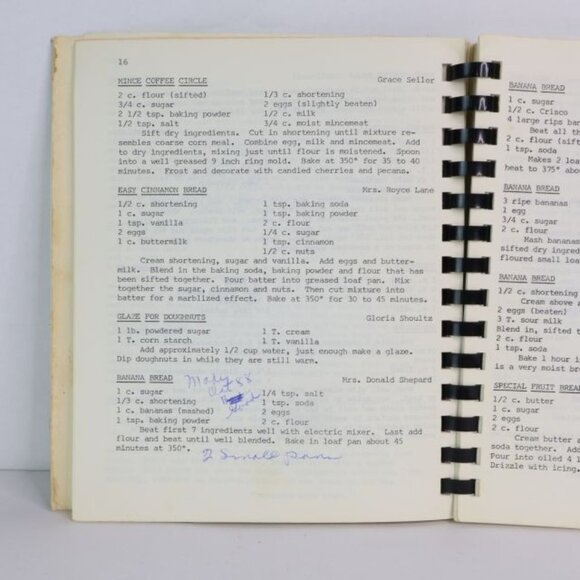 16
MINCE COFFEE CIRCLE Grace Seiler
2 c. flour (sifted) 1/3 c. shortening
3/4 c. sugar 2 eggs (slightly beaten)
2 1/2 tsp. baking powder 1/2 c. milk
1/2 tsp. salt 3/4 c. moist mincemeat
Sift dry ingredients. Cut in shortening until mixture re-
sembles coarse corn meal. Combine egg, milk and mincemeat. Add
to dry ingredients, mixing just until flour is moistened. Spoon
into a well greased 9 inch ring mold. Bake at 350° for 35 to 40
minutes. Frost and decorate with candied cherries and pecans.
EASY CINNAMON BREAD Mrs. Royce Lane
1/2 c. shortening 1 tsp. baking soda
1 c. sugar 1 tsp. baking powder
1 tsp. vanilla 2 c. flour
2 eggs 1/4 c. sugar
1 c. buttermilk 1 tsp. cinnamon
1/2 c. nuts
Cream shortening, sugar and vanilla. Add eggs and butter-
milk. Blend in the baking soda, baking powder and flour that has
been sifted together. Pour batter into greased loaf pan. Mix
together the sugar, cinnamon and nuts. Then cut mixture into
batter for a marblized effect. Bake at 350° for 30 to 45 minutes.
GLAZE FOR DOUGHNUTS Gloria Shoultz
1 lb. powdered sugar 1 T. cream
1 T. corn starch 1 T. vanilla
Add approximately 1/2 cup water, just enough make a glaze.
Dip doughnuts in while they are still warm.
BANANA BREAD Mrs. Donald Shepard
88
Good
1 c. sugar 1/4 tsp. salt
1/3 c. shortening 1 tsp. soda
1 c. bananas (mashed) 2 eggs
1 tsp. baking powder 2 c. flour
Beat first 7 ingredients well with electric mixer. Last add
flour and beat until well blended. Bake in loaf pan about 45
minutes at 350°. 2 Small pans
BANANA BREAD
1 c. sugar
1/2 c. Crisco
4 large rips
Beat all
2 c. flour
1 tsp. soda
Makes 2
heat to 375°
BANANA BREAD
3 ripe bananas
1 egg
3/4 c. sugar
2 c. flour
Mash bananas
sifted dry
floured small
BANANA BREAD
1/2 c. shortening
Cream above
2 eggs (beaten)
3 T. sour milk
Blend in, sifted
2 c. flour
1 tsp. soda
Bake 1 hour
is a very moist
SPECIAL FRUIT BREAD
1/2 c. butter
1 c. sugar
2 eggs
Cream butter
soda together.
Pour into oiled 4
Drizzle with icing.